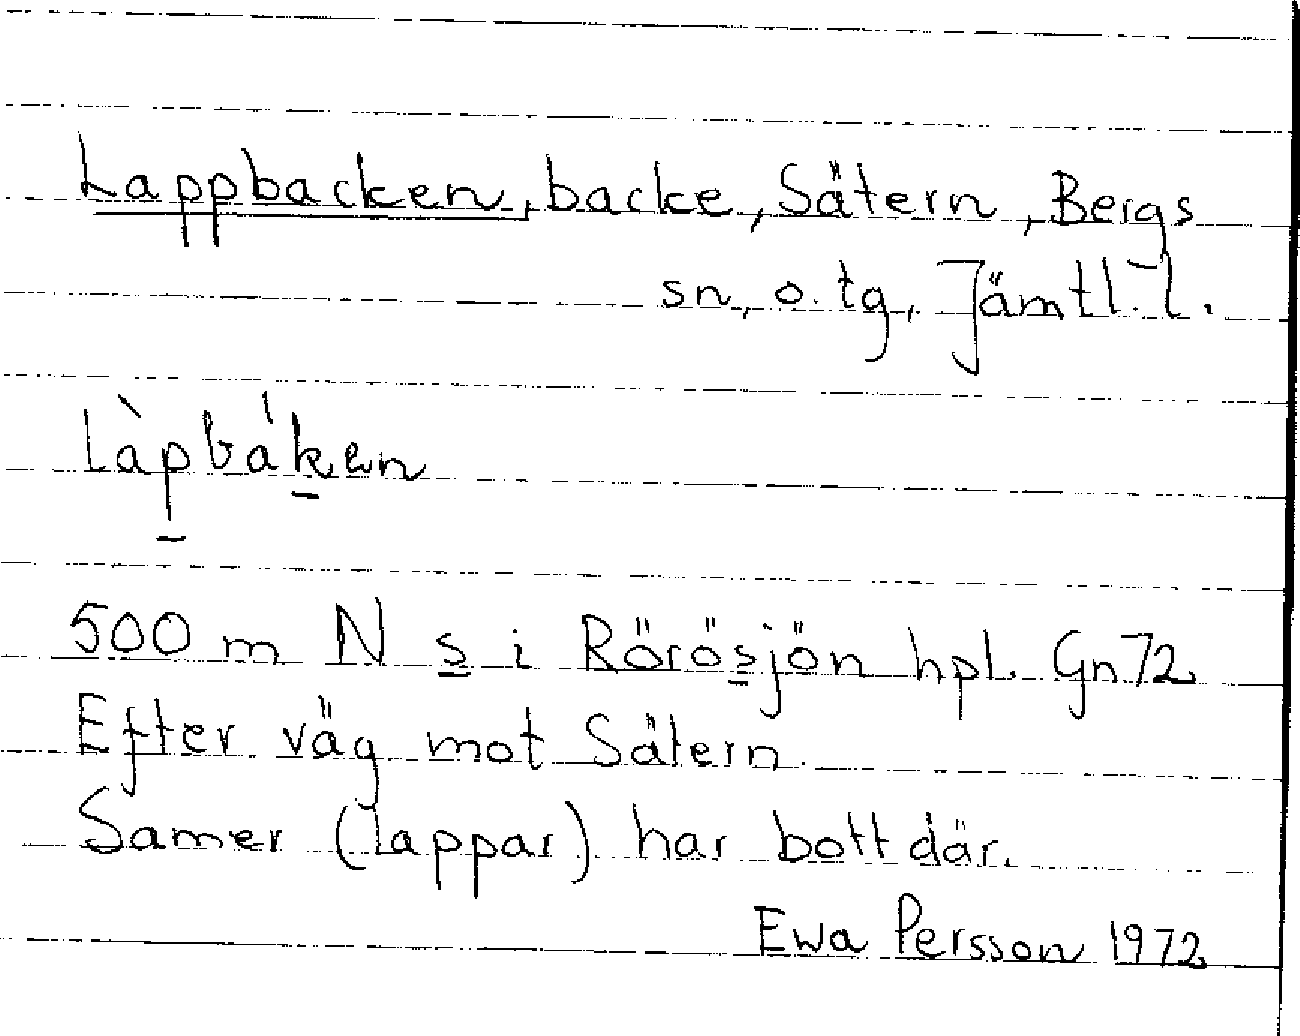 Lappbacken, backe, Sätern, Bergs
sn, o. tg, Jämtl. l.
Làpbáken
500 m N s i Rörösjön hpl. Gn 72
Efter väg mot Sätern.
Samer (lappar) har bott där.
Ewa Persson 1972